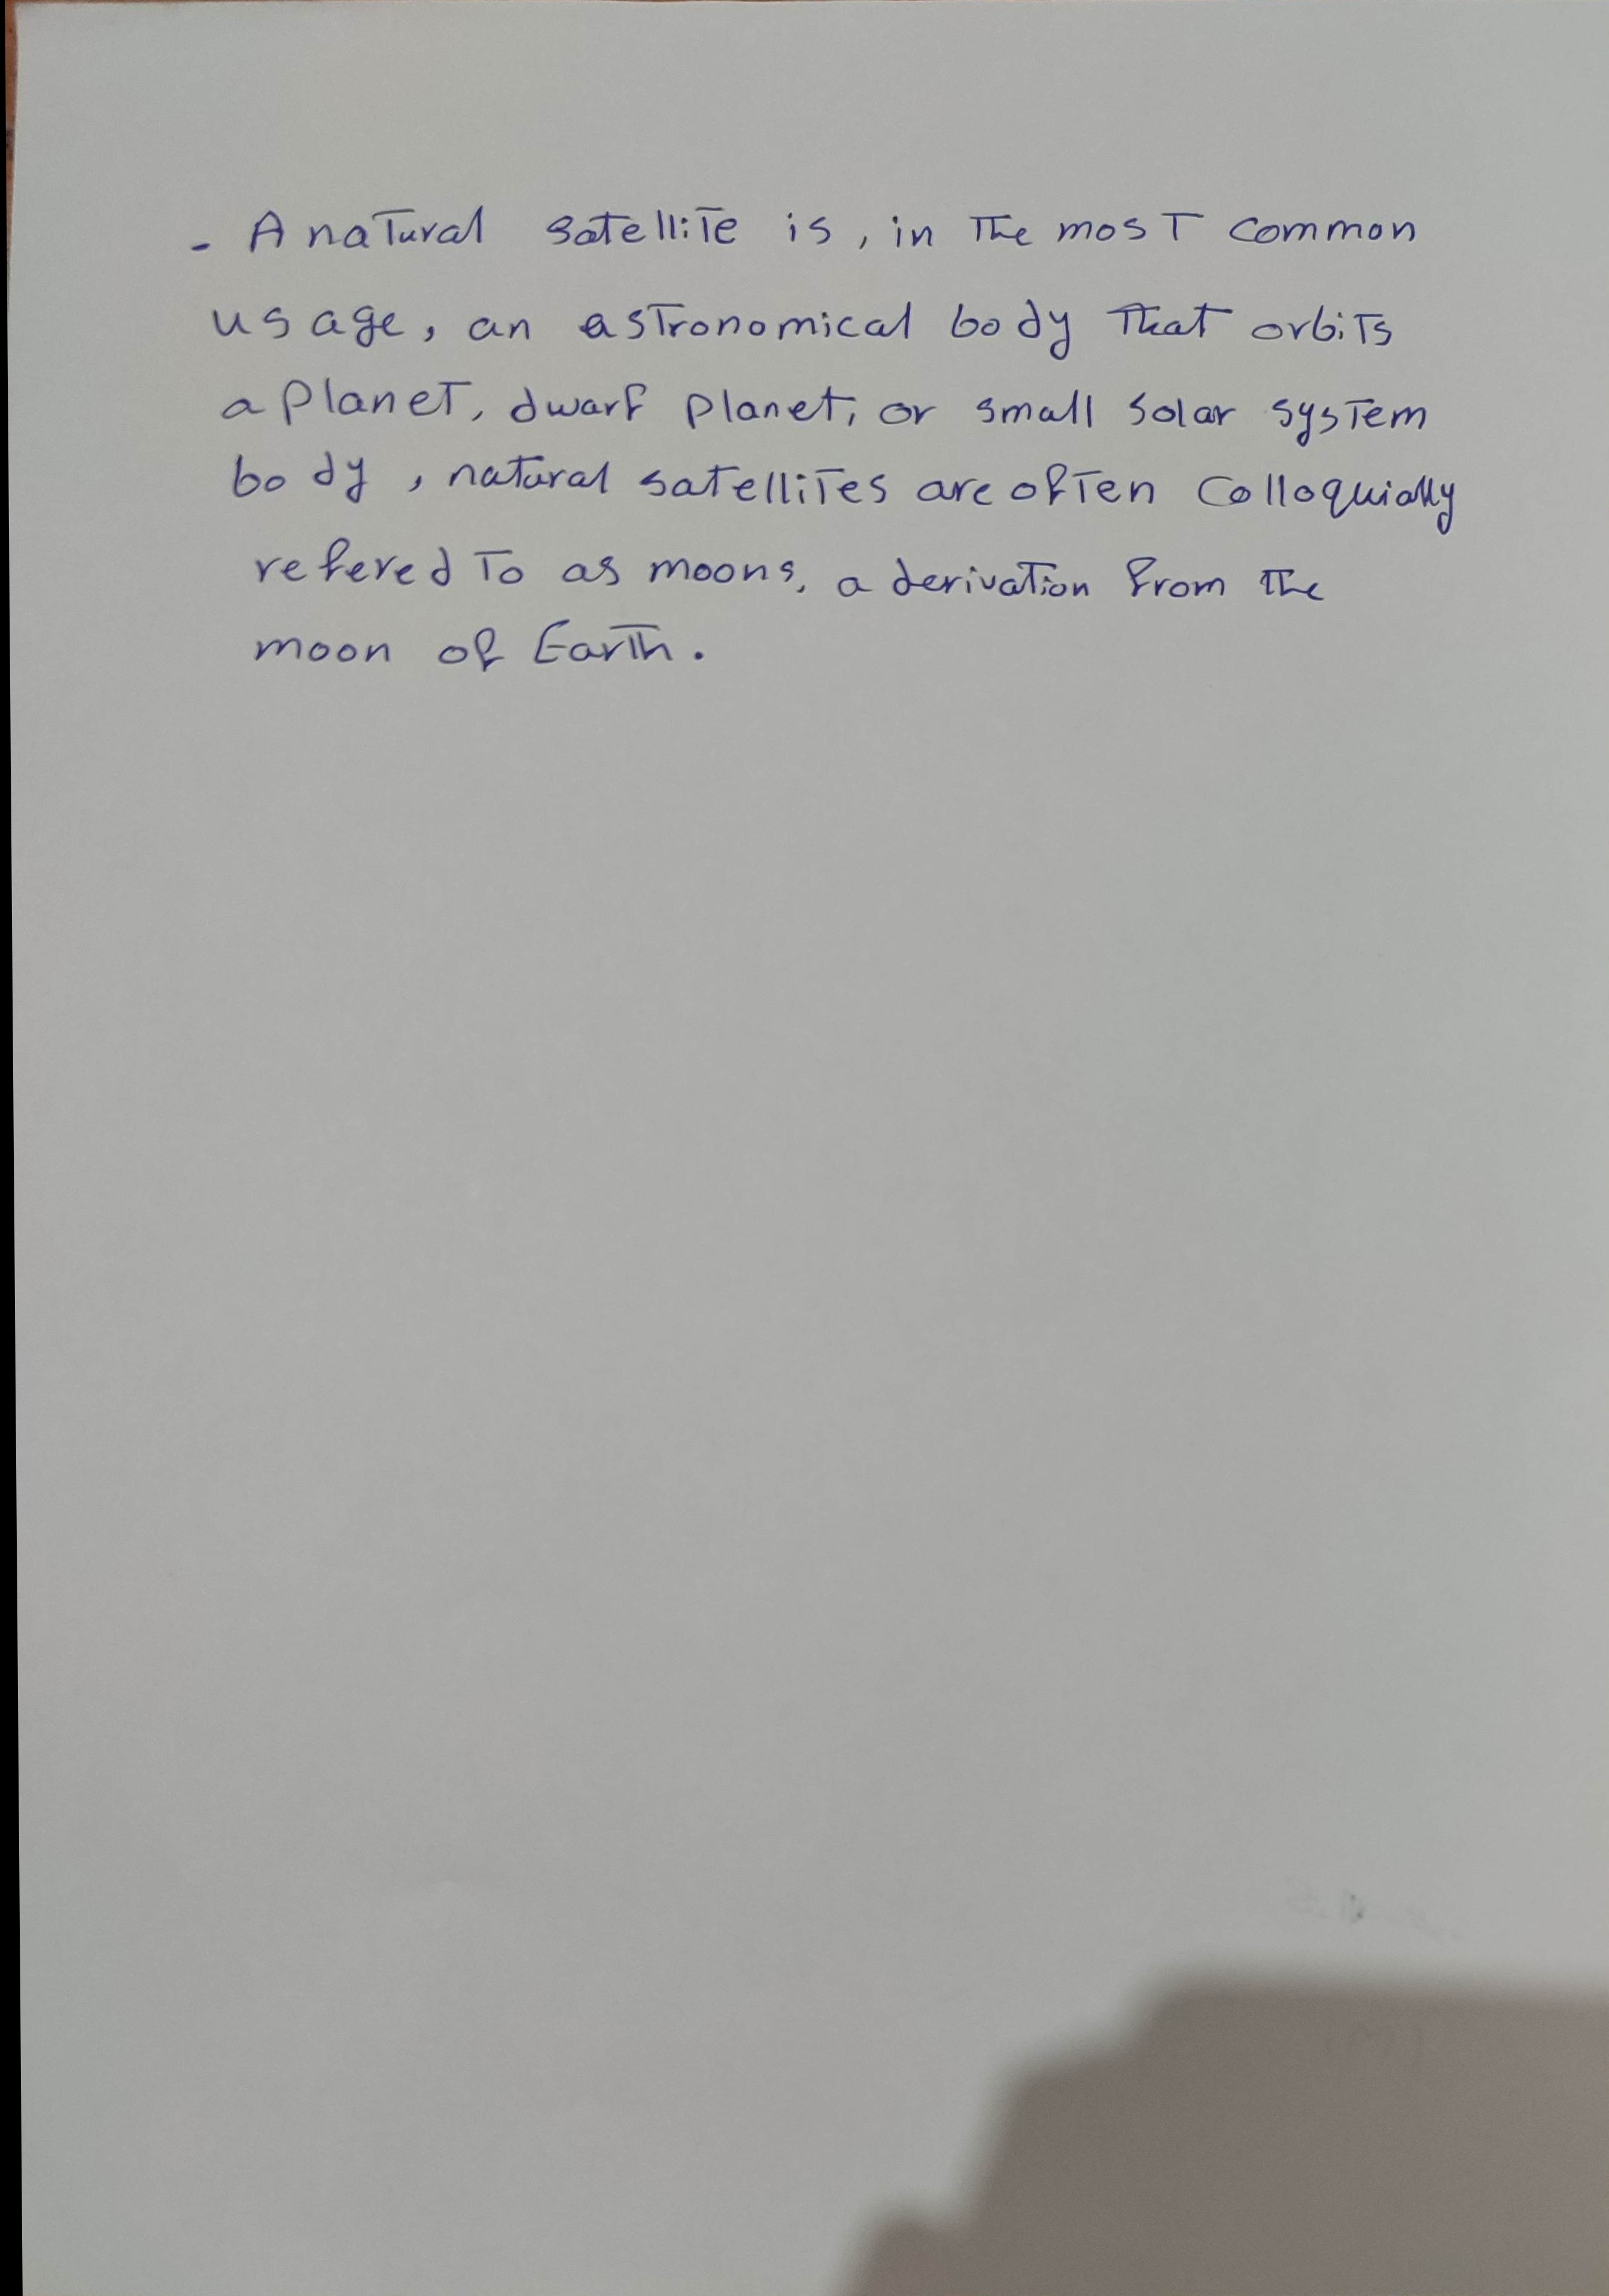 - A natural satellite is, in the most common
usage, an astronomical body that orbits
a planet, dwarf planet, or small solar system
body, natural satellites are often colloquially
refered to as moons, a derivation from the
moon of Earth.